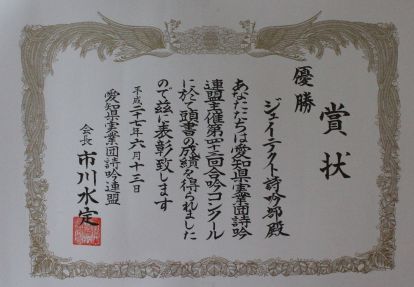 賞状
優勝
ジェイテクト詩吟部殿
あなたたちは愛知県実業団詩吟
連盟主催第四十三回合吟コンクール
に於て頭書の成績を得られました
ので茲に表彰致します
平成二十七年六月十三日
愛知県実業団詩吟連盟
会長 市川水定